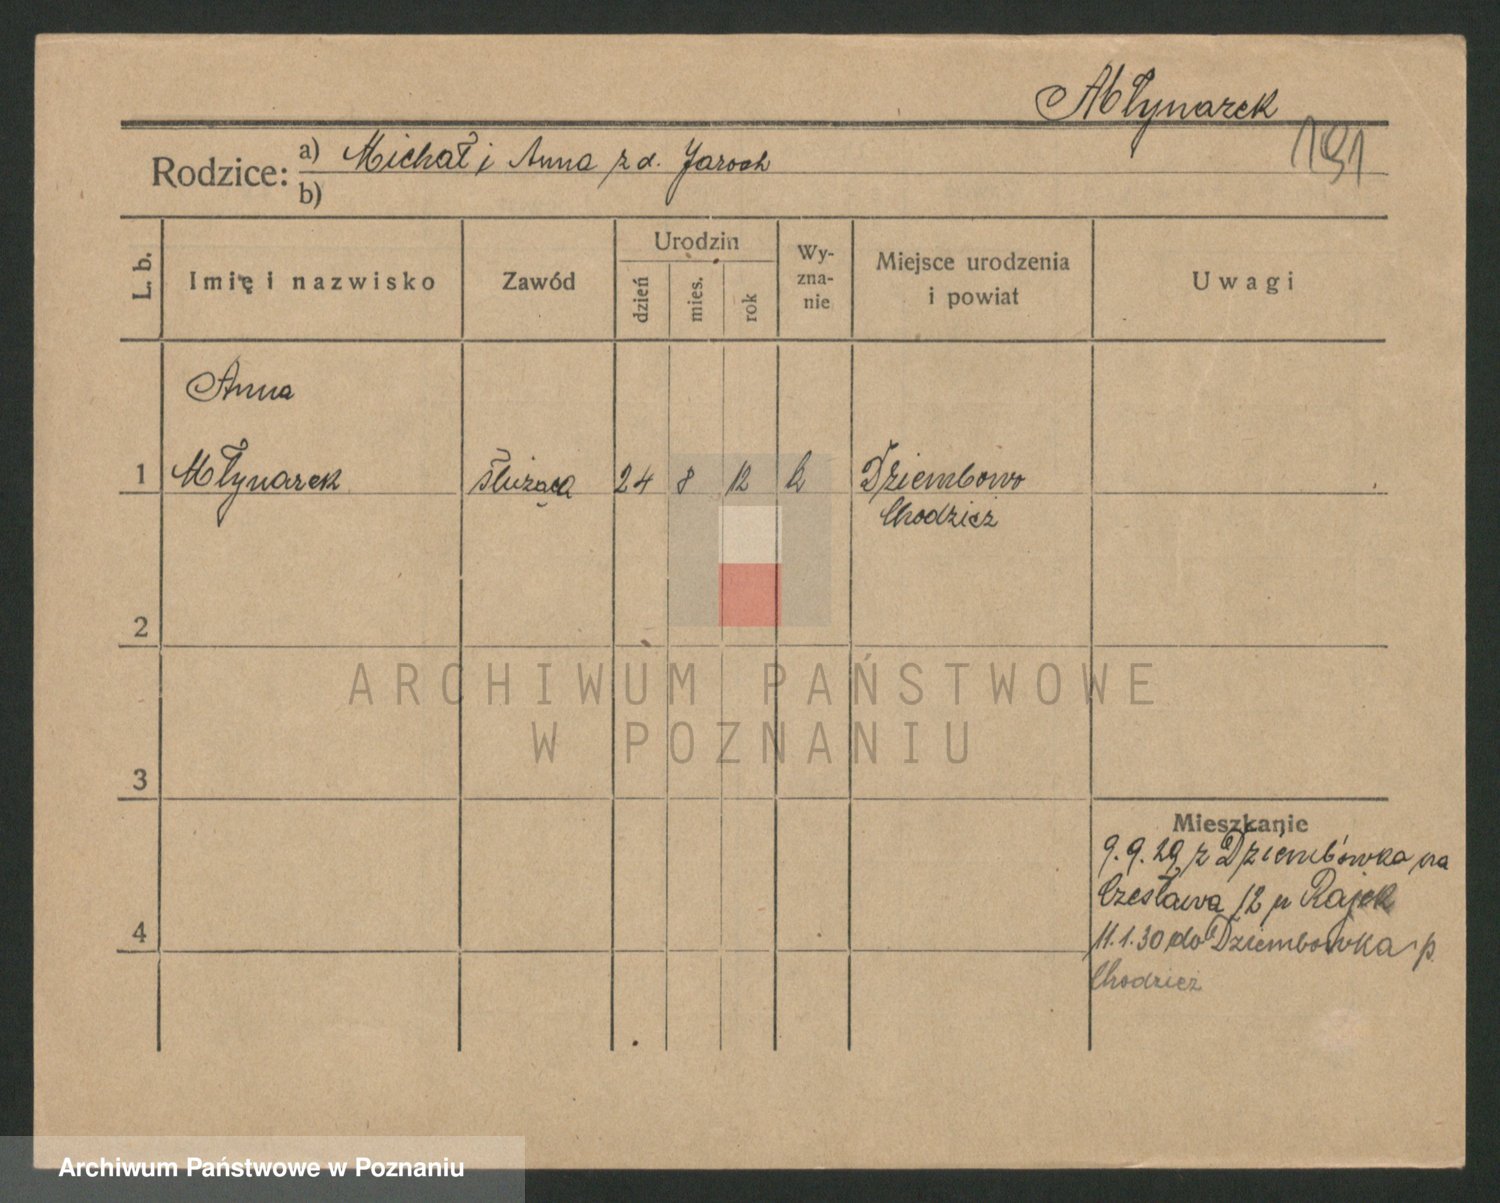 Młynarek
191
Rodzice: a) Michał i Anna z d. Jaroch
b)
L. b.
Imię i nazwisko
Zawód
Urodzin
dzień
mies.
rok
Wy-
zna-
nie
Miejsce urodzenia
i powiat
Uwagi
Anna
1 Młynarek służąca 24 8 12 k Dziembowo
Chodzież
2
ARCHIWUM PAŃSTWOWE
W POZNANIU
3
Mieszkanie
9.9.29 z Dziembówka na
Czesława 12 u Rajek
4
11.1.30 do Dziembówka p.
Chodzież
Archiwum Państwowe w Poznaniu